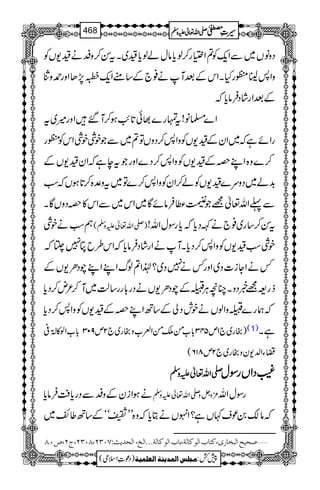 سیرتِ مصطفیٰ صلی اللہ تعالیٰ علیہ وسلم 468
دونوں میں سے ایک کو تم اختیار کر لو یا مال لے لو یا قیدی۔ یہ سن کر وفد نے قیدیوں کو
واپس لینا منظور کیا۔ اس کے بعد آپ نے فوج کے سامنے ایک خطبہ پڑھا اور حمد و ثنا
کے بعد ارشاد فرمایا کہ
اے مسلمانو! یہ تمہارے بھائی تائب ہو کر آ گئے ہیں اور میری یہ
رائے ہے کہ میں ان کے قیدیوں کو واپس کر دوں تو تم میں سے جو خوشی خوشی اس کو منظور
کرے وہ اپنے حصہ کے قیدیوں کو واپس کر دے اور جو یہ چاہے کہ ان قیدیوں کے
بدلے میں دوسرے قیدیوں کو لے کر ان کو واپس کرے تو میں یہ وعدہ کرتا ہوں کہ سب
سے پہلے اللہ تعالیٰ مجھے جو غنیمت عطا فرمائے گا میں اس میں سے اس کا حصہ دوں گا۔
یہ سن کر ساری فوج نے کہہ دیا کہ یا رسول اللہ! (صلی اللہ تعالیٰ علیہ وسلم) ہم سب نے خوشی
خوشی سب قیدیوں کو واپس کر دیا۔ آپ نے ارشاد فرمایا کہ اس طرح پتا نہیں چلتا کہ
کس نے اجازت دی اور کس نے نہیں دی؟ لہٰذا تم لوگ اپنے اپنے چودھریوں کے
ذریعہ مجھے خبر دو۔ چنانچہ ہر قبیلہ کے چودھریوں نے دربار رسالت میں آ کر عرض کر دیا
کہ ہمارے قبیلہ والوں نے خوش دلی کے ساتھ اپنے حصہ کے قیدیوں کو واپس کر دیا
ہے۔ (1) (بخاری ج۱ ص۳۴۵ باب من ملک من العرب و بخاری ج۱ ص۳۰۹ باب الوکالۃ فی
قضاء الدیون و بخاری ج۲ ص۶۱۸)
غیب داں رسول صلی اللہ تعالیٰ علیہ وسلم
رسول اللہ عزوجل و صلی اللہ تعالیٰ علیہ وسلم نے ہوازن کے وفد سے دریافت فرمایا
کہ مالک بن عوف کہاں ہے؟ انہوں نے بتایا کہ وہ "ثقیف" کے ساتھ طائف میں
صحیح البخاری، کتاب الوکالۃ، باب الوکالۃ...الخ، الحدیث: ۲۳۰۷، ۲۳۰۸، ج۲، ص۸۰
پیش کش: مجلس المدینۃ العلمیۃ (دعوتِ اسلامی)